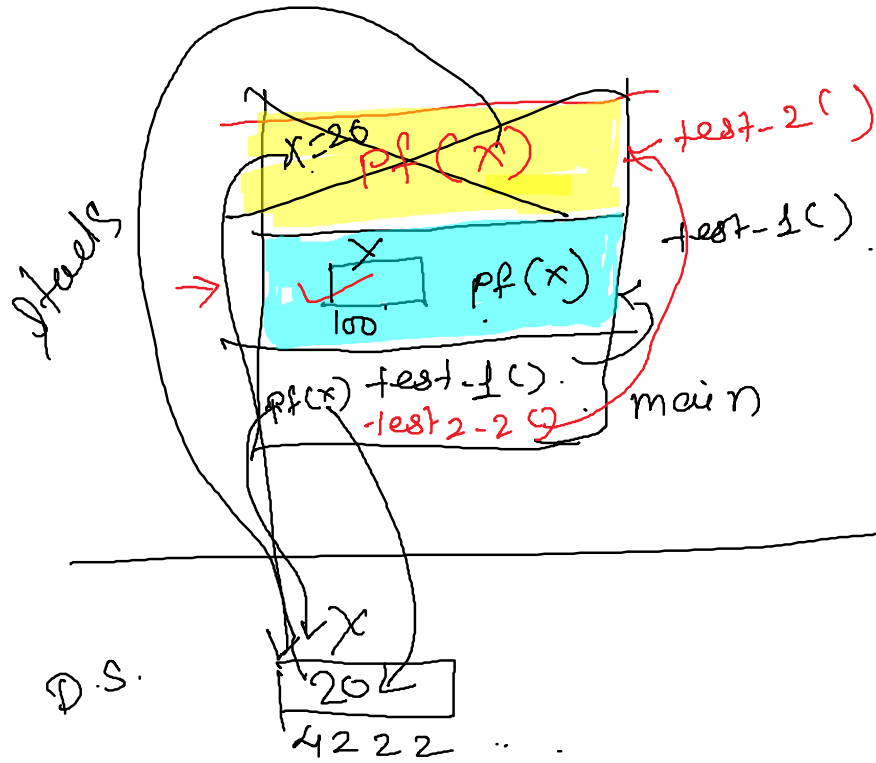 x=20 pf(x) test-2()
test-1().
x
pf(x)
100
pf(x) test-1().
test2-2() main
x
D.S. 20
4222 .. .